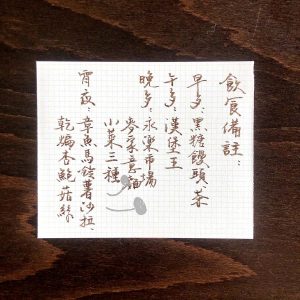 飲食備註：
早多：黑糖饅頭、茶
午多：漢堡王
晚多：永樂市場
小菜三種
宵夜：章魚馬鈴薯沙拉、
乾煸杏鮑菇絲